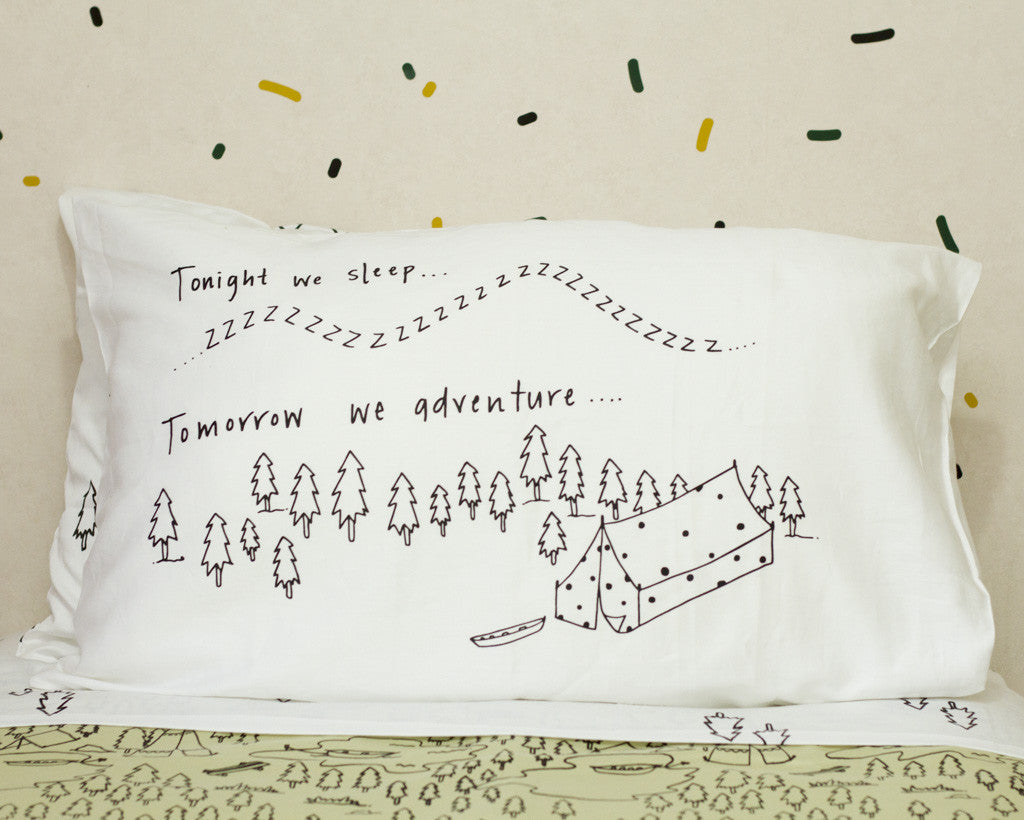 Tonight we sleep...
....ZZZZZZZZZZZZZZZZZZZZZZZZZZZ....
Tomorrow we adventure....